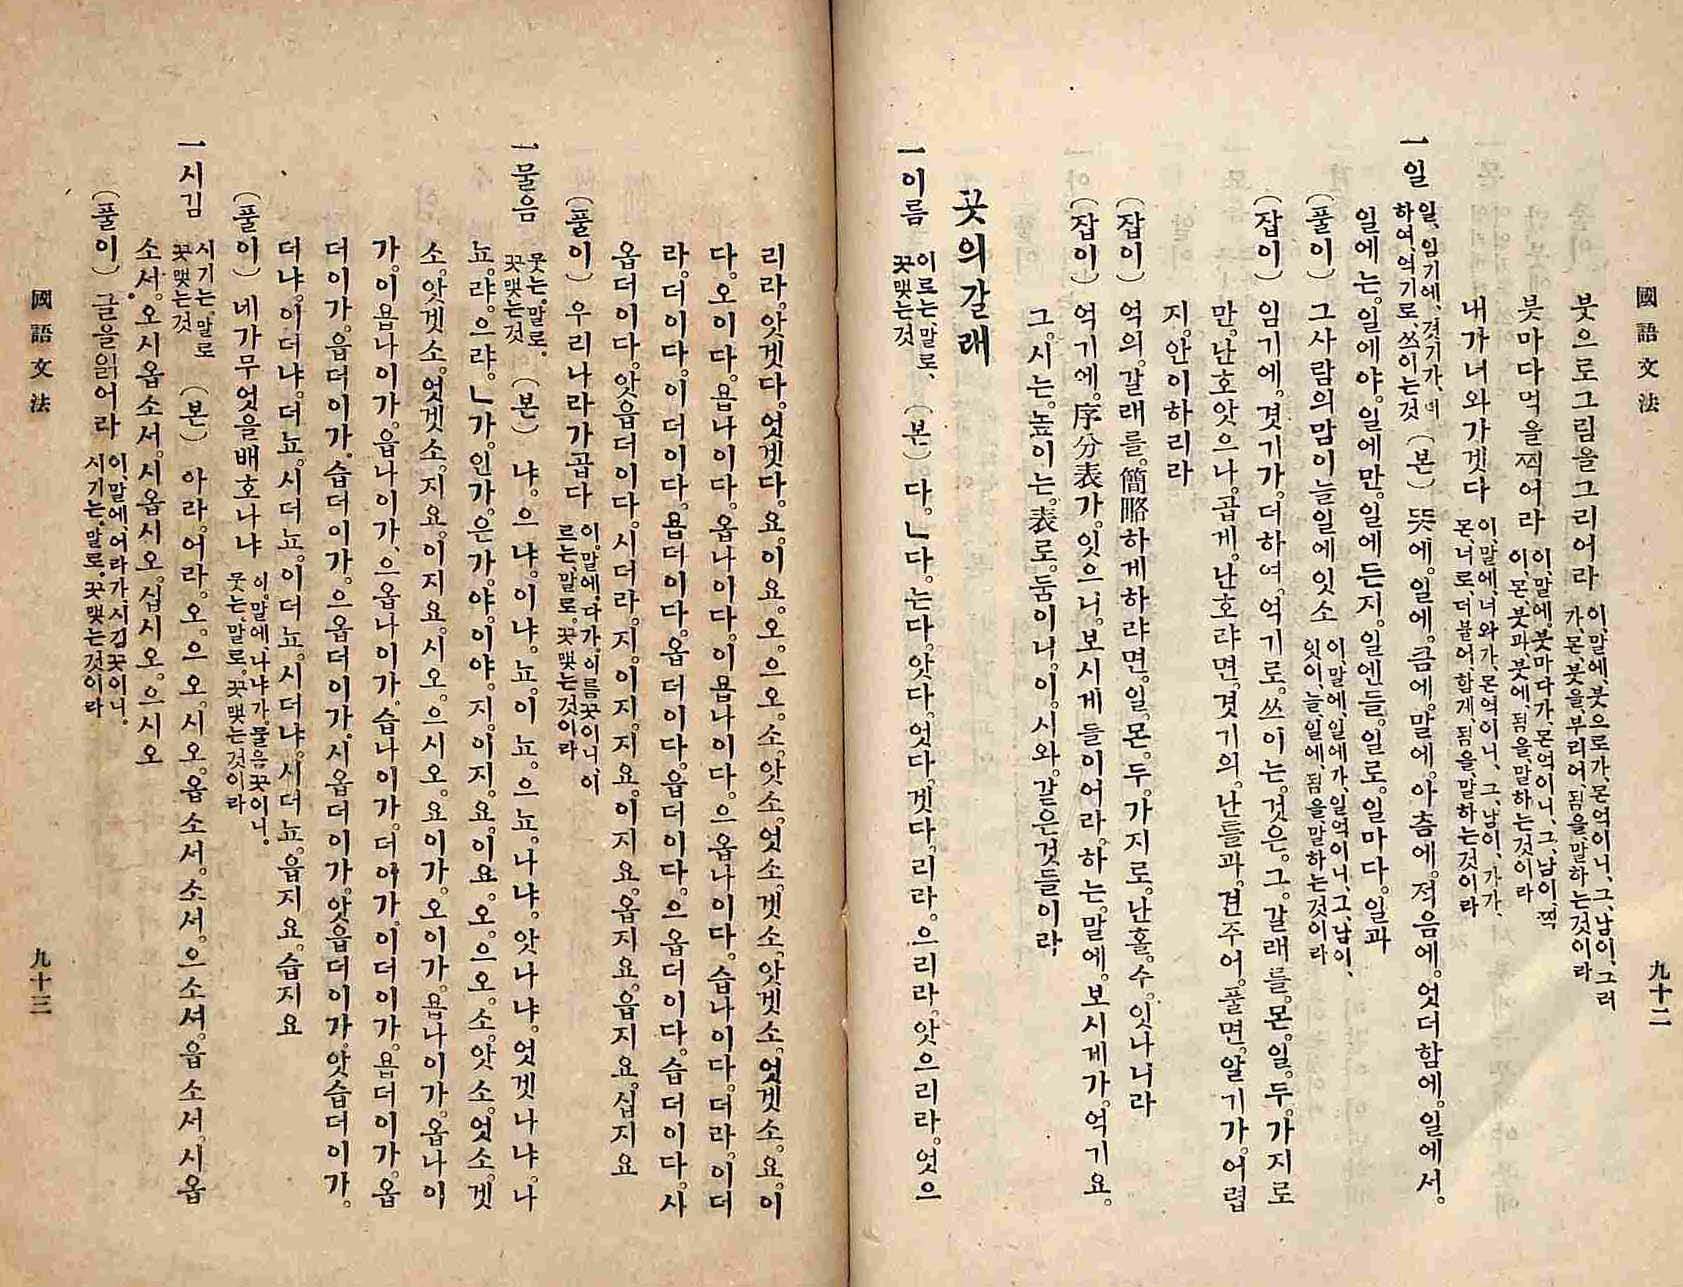 國語文法
九十二
붓으로그림을그리어라
이,말에,붓으로가,몬억이니,그,남이,그려
가,몬,붓을,부리어,됨을,말하는것이라
붓마다먹을찍어라
이,말에,붓마다가,몬억이니,그,남이,찍
이,몬,붓과,붓에,됨을,말하는것이라
내가너와가겟다
이,말에,너와가,몬억이니,그,남이,가가,
몬,너로,더불어,함게,됨을,말하는것이라
一일
일,임기에,겻기가,더
하여,억기로,쓰이는것
(본) 뜻에。일에。큼에。말에。아츰에。적음에。엇더함에。일에서。
일에는。일에야。일에만。일에든지。일엔들。일로。일마다。일과
(풀이) 그사람의맘이늘일에잇소
이,말에,일에가,일억이니,그,남이,
잇이,늘일에,됨을말하는것이라
(잡이) 임기에。겻기가。더하여。억기로。쓰이는。것은。그。갈래를。몬。일。두。가지로
만。난호앗으나。곱게。난호랴면。겻기의。난들과。견주어。풀면。알기가。어렵
지。안이하리라
(잡이) 억의。갈래를。簡略하게하랴면。일。몬。두。가지로。난홀。수。잇나니라
(잡이) 억기에。序分表가。잇으니。보시게들이어라。하는。말에。보시게가。억기요。
그。시는。높이는。表로。둠이니。이。시와。갈은것들이라
끗의갈래
一이름
이르는말로、
끗맺는것
(본) 다。ㄴ다。는다。앗다。엇다。겟다。리라。으리라。앗으리라。엇으
리라。앗겟다。엇겟다。요。이요。오。으오。소。앗소。엇소。겟소。앗겟소。엇겟소。요。이
다。오이다。욥나이다。옵나이다。이욥나이다。으옵나이다。습나이다。더라。이더
라。더이다。이더이다。욥더이다。옵더이다。읍더이다。으옵더이다。습더이다。사
옵더이다。앗읍더이다。시더라。지。이지。지요。이지요。옵지요。읍지요。십지요
(풀이) 우리나라가곱다
이。말에。다가。이름끗이니이
르는。말로。끗맺는것이라
一물음
뭇는。말로、
끗맺는것
(본) 냐。으냐。이냐。뇨。이뇨。으뇨。나냐。앗나냐。엇겟나냐。나
뇨。랴。으랴。ㄴ가。인가。은가。야。이야。지。이지。요。이요。오。으오。소。앗소。엇소。겟
소。앗겟소。엇겟소。지요。이지요。시오。으시오。요이가。오이가。욥나이가。옵나이
가。이욥나이가。읍나이가、으옵나이가。습나이가。더이가。이더이가。욥더이가。옵
더이가。읍더이가。습더이가。으옵더이가。시옵더이가。앗읍더이가。앗습더이가。
더냐。이더냐。더뇨。시더뇨。이더뇨。시더냐。시더뇨。읍지요。습지요
(풀이) 네가무엇을배호나냐
이。말에、나냐가。물음끗이니。
뭇는、말로。끗맺는것이라
一시김
시기는。말로
끗맺는것
(본) 아라。어라。오。으오。시오。옵소서。소서。으소셔。읍소서。시옵
소서。오시옵소서。시옵시오。십시오。으시오
(풀이) 글을읽어라
이、말에、어라가、시김끗이니。
시기는、말로。끗맺는것이라
國語文法
九十三